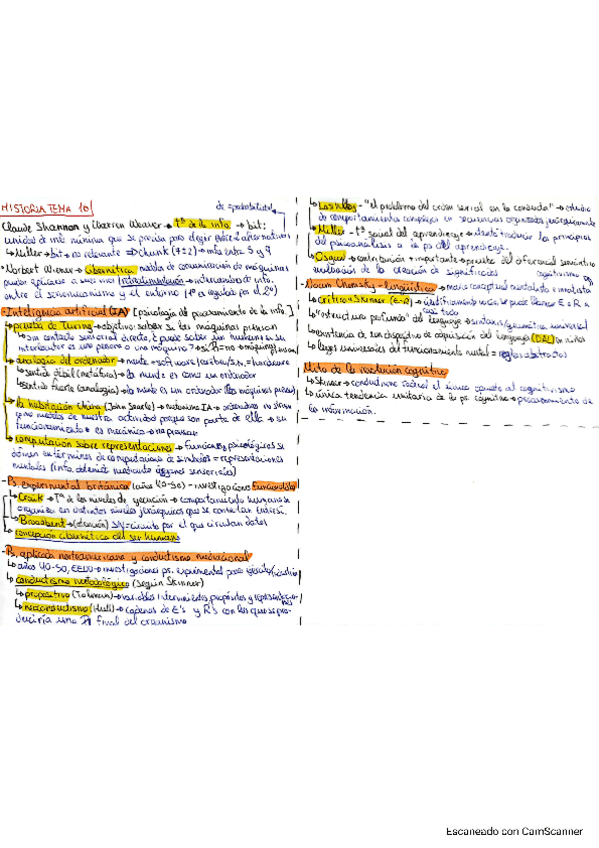 HISTORIA TEMA 10
Claude Shannon y Warren Weaver → Tª de la info → bit:
unidad de info mínima que se precisa para elegir entre 2 alternativas
↳ Miller → bit = no relevante ⇒ Chunk (7±2) → info entre 5 y 9
- Norbert Wiener → Cibernética modelo de comunicación de máquinas
puede aplicarse a seres vivos retroalimentación → intercambio de info.
entre el servomecanismo y el entorno (1º es regulado por el 2º)
- Inteligencia artificial (IA) [psicología del procesamiento de la info.]
prueba de Turing → objetivo: saber si las máquinas piensan
↳ sin contacto sensorial directo, ¿puede saber un humano si su
interlocutor es una persona o una máquina? → si R = no → máquinas piensan
analogía del ordenador → mente = software / cerebro/S.N. = hardware
↳ sentido débil (metáfora) → la mente es como un ordenador
↳ sentido fuerte (analogía) → la mente es un ordenador (las máquinas piensan)
↳ la habitación china (John Searle) →
como modelos de nuestra actividad porque son parte de ella → su
funcionamiento es mecánico → no piensan
↳ computación sobre representaciones → funciones psicológicas se
definen en términos de computaciones de símbolos = representaciones
mentales (info. obtenida mediante órganos sensoriales)
- Ps. experimental británica (años 40-50) - investigaciones funcionalistas
↳ Craik → Tª de los niveles de ejecución → comportamiento humano se
organiza en distintos niveles jerárquicos que se conectan entre sí.
↳ Broadbent → (atención) SN = circuito por el que circulan datos
↳ concepción cibernética del ser humano
- Ps. aplicada norteamericana y conductismo mediacional
↳ años 40-50, EEUU → investigaciones ps. experimental para ejército/industria
↳ conductismo metodológico (según Skinner)
↳ propositivo (Tolman) → variables intermedias, propósitos y representaciones
↳ neoconductismo (Hull) → cadenas de E's y R's con las que se pro-
duciría una R final del organismo
↳ Lashley - "el problema del orden serial en la conducta" → estudio
de comportamientos complejos en secuencias organizadas jerárquicamente
↳ Miller - Tª social del aprendizaje → intentó traducir los principios
del psicoanálisis a la ps del aprendizaje.
↳ Osgood → contribución + importante → prueba del diferencial semántico
evaluación de la creación de significados
- Noam Chomsky - lingüística → marco conceptual mentalista e innatista
↳ critica a Skinner (E-R) → científicamente no se puede llamar E o R a
casi todo
↳ "estructura profunda" del lenguaje → sintaxis/gramática universal
↳ existencia de un dispositivo de adquisición del lenguaje (DAL) en niños
↳ leyes universales del funcionamiento mental = reglas abstractas
- Mito de la revolución cognitiva
↳ Skinner → conductismo radical el único opuesto al cognitivismo
↳ única tendencia unitaria de la ps cognitiva → procesamiento de
la información.
Escaneado con CamScanner